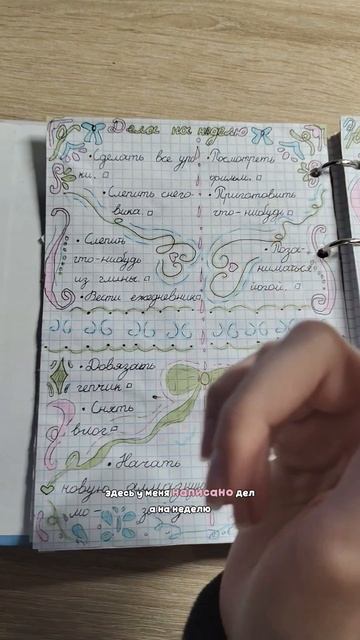 Дела на неделю
• Сделать все уро-
ки. □
• Слепить снего-
вика. □
• Слепить
что-нибудь
из глины. □
• Вести ежедневник
• Посмотреть
фильм. □
• Приготовить
что-нибудь □
• Поза-
ниматься
йогой. □
• Довязать
чепчик □
• Снять
влог □
• Начать
новую алмазную
мо-
здесь у меня написано дел
а на неделю